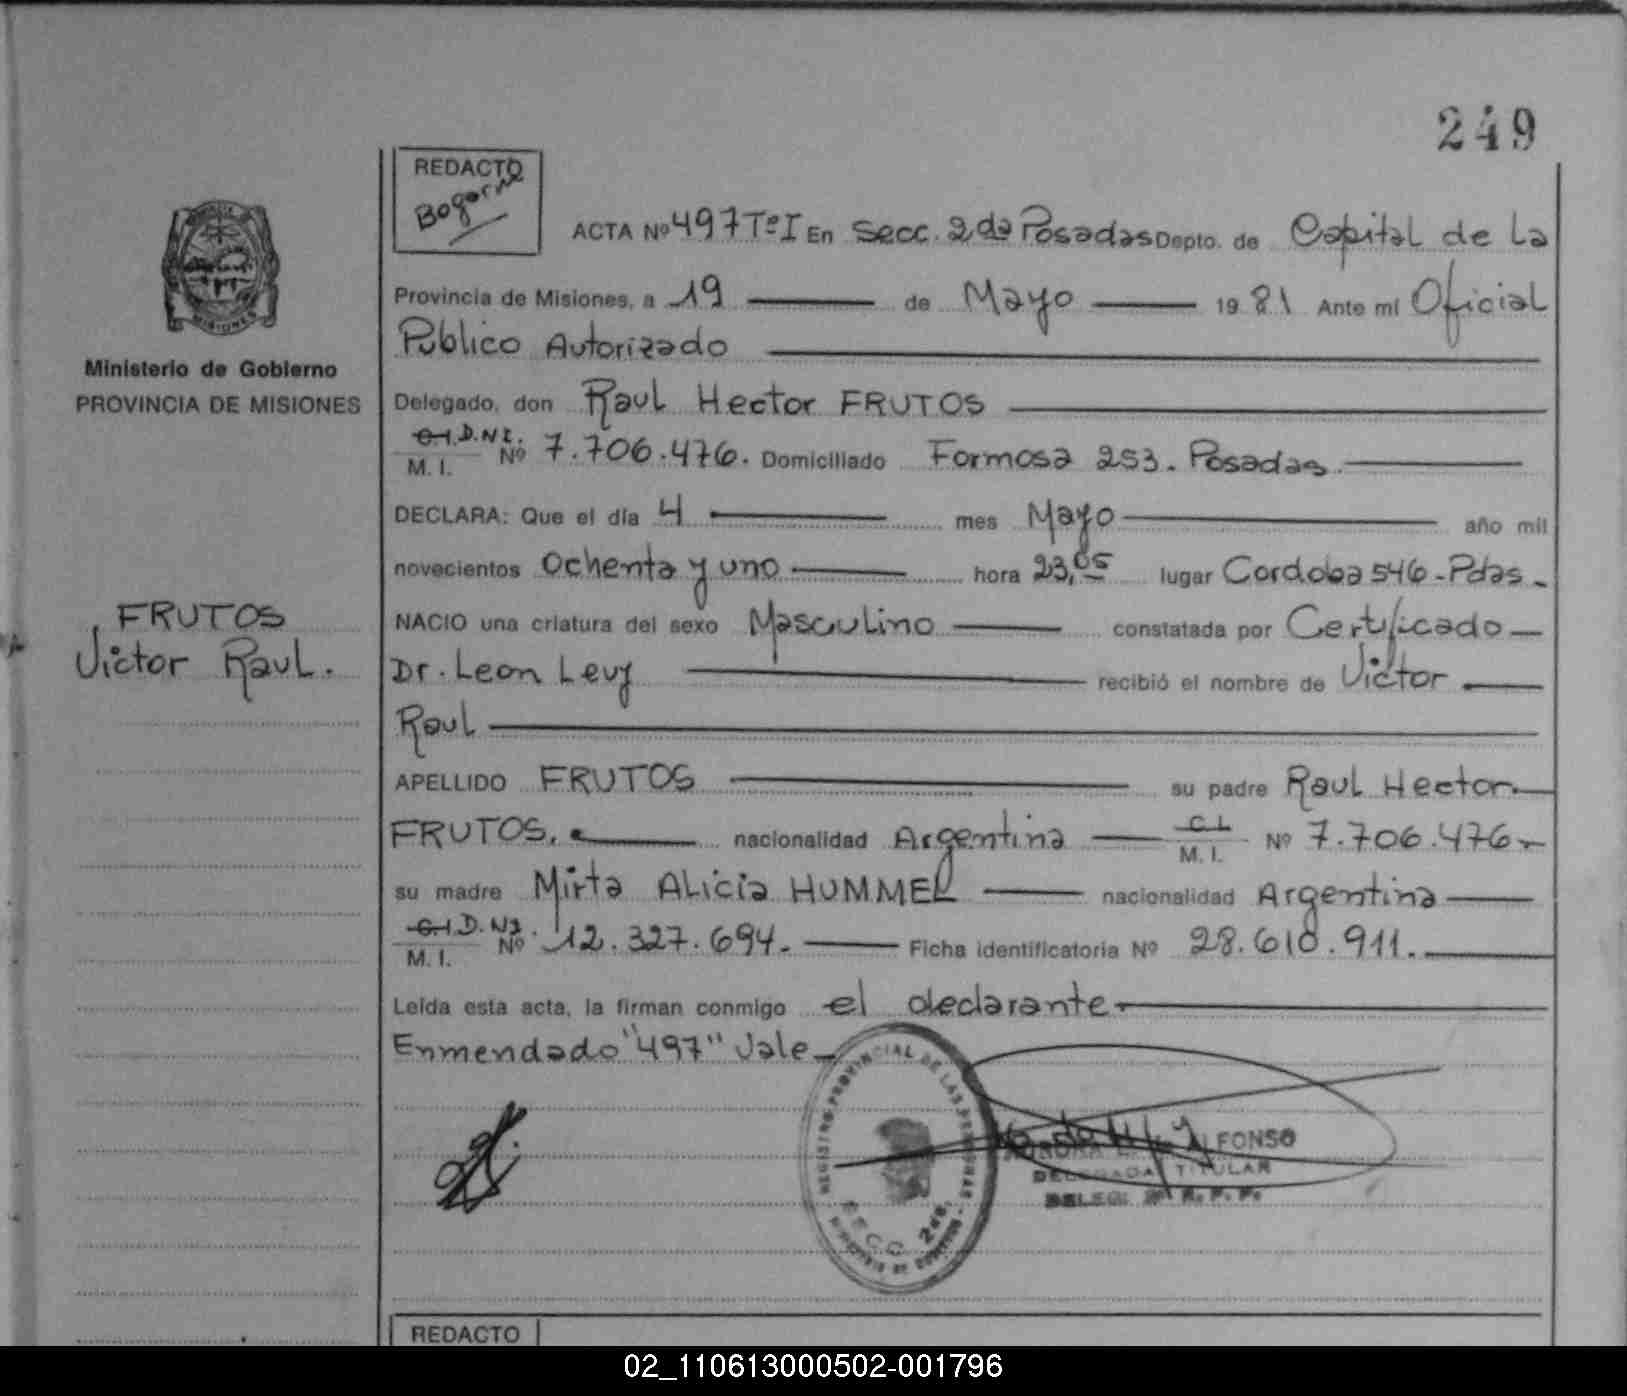 249
REDACTO
ACTA Nº 497 Tº I En Secc. 2da Posadas Depto. de Capital de La
Provincia de Misiones, a 19 de Mayo 1981 Ante mí Oficial
Público Autorizado
Ministerio de Gobierno
PROVINCIA DE MISIONES
Delegado, don Raul Hector FRUTOS
C.I. D.N.I.
M. I. Nº 7.706.476. Domiciliado Formosa 253. Posadas.
DECLARA: Que el día 4 mes Mayo año mil
novecientos Ochenta y uno hora 23,05 lugar Cordoba 546 - Pdas -
FRUTOS
Victor Raul.
NACIO una criatura del sexo Masculino constatada por Certificado
Dr. Leon Levy recibió el nombre de Victor
Raul
APELLIDO FRUTOS su padre Raul Hector
FRUTOS. nacionalidad Argentina C.I.
M. I. Nº 7.706.476-
su madre Mirta Alicia HUMMEL nacionalidad Argentina
C.I. D.N.I.
M. I. Nº 12.327.694.- Ficha identificatoria Nº 28.610.911.
Leída esta acta, la firman conmigo el declarante
Enmendado "497" Vale
REGISTRO PROVINCIAL DE LAS PERSONAS
SECC. 2da.
MINISTERIO DE GOBIERNO
ALFONSO
DELEGADA TITULAR
DELEG. R. P. P.
REDACTO
02_110613000502-001796